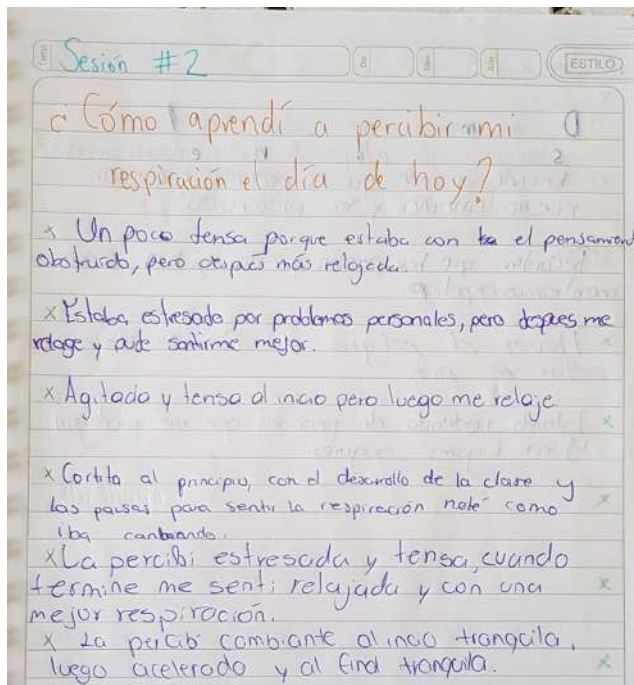 Sesión #2
ESTILO
¿Cómo aprendí a percibir mi
respiración el día de hoy?
x Un poco tensa porque estaba con el pensamien
obstruido, pero despúes más relajada.
x Estaba estresado por problemas personales, pero despues me
relage y pude sentirme mejor.
x Agitado y tensa al inicio pero luego me relaje
x Cortita al principio, con el desarrollo de la clase y
las pausas para sentir la respiración noté como
iba cambiando.
x La percibi estresada y tensa, cuando
termine me senti relajada y con una
mejor respiración.
x La percibi cambiante al inicio tranquila,
luego acelerado y al final tranquila.